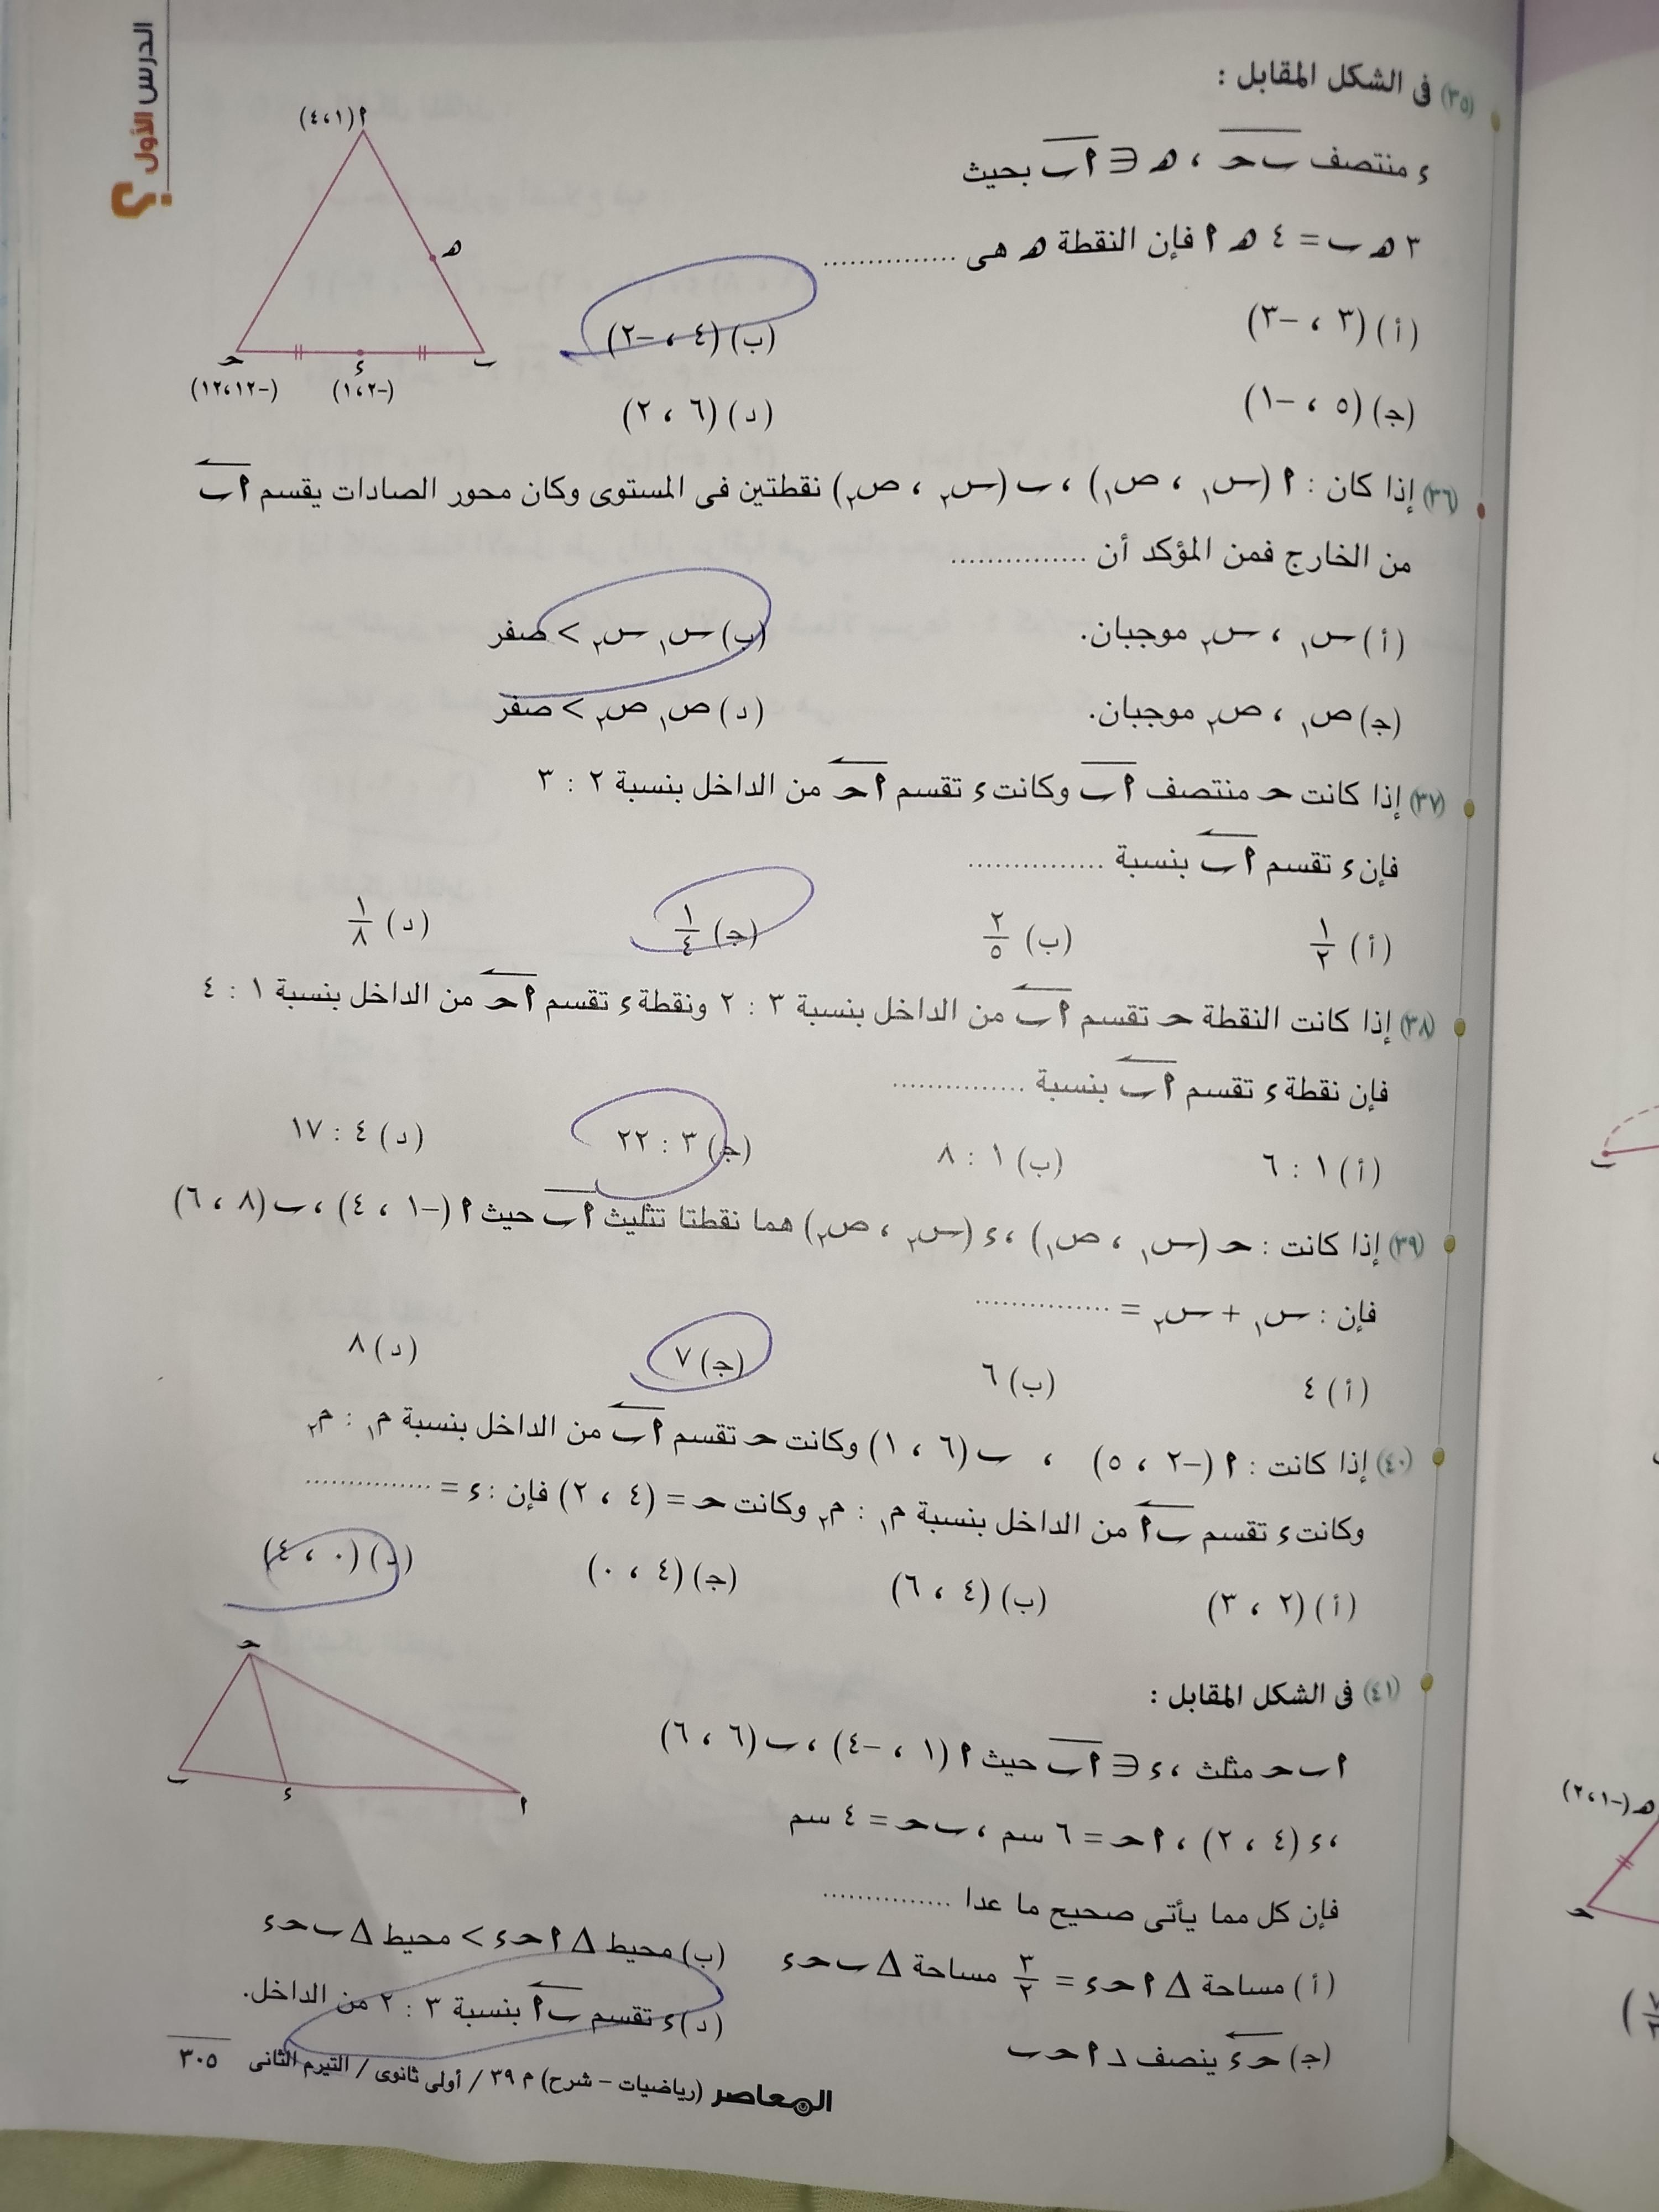 الدرس الأول
(٣٥) فى الشكل المقابل :
ء منتصف ب ح ، ه ∈ أ ب بحيث
٣ ه ب = ٤ ه أ فإن النقطة ه هى ...............
(أ) (٣ ، -٣)
(ب) (٤ ، -٢)
(ج) (٥ ، -١)
(د) (٦ ، ٢)
أ (١، ٤)
ه
ح
ء
ب
(-١٢، ١٢)
(-٢، ١)
(٣٦) إذا كان : أ (س١ ، ص١) ، ب (س٢ ، ص٢) نقطتين فى المستوى وكان محور الصادات يقسم أ ب
من الخارج فمن المؤكد أن ...............
(أ) س١ ، س٢ موجبان.
(ب) س١ س٢ > صفر
(ج) ص١ ، ص٢ موجبان.
(د) ص١ ص٢ > صفر
(٣٧) إذا كانت ح منتصف أ ب وكانت ء تقسم أ ح من الداخل بنسبة ٢ : ٣
فإن ء تقسم أ ب بنسبة ...............
(أ) ١/٢ (ب) ٢/٥ (ج) ١/٤ (د) ١/٨
(٣٨) إذا كانت النقطة ح تقسم أ ب من الداخل بنسبة ٣ : ٢ ونقطة ء تقسم أ ح من الداخل بنسبة ١ : ٤
فإن نقطة ء تقسم أ ب بنسبة ...............
(أ) ١ : ٦ (ب) ١ : ٨ (ج) ٣ : ٢٢ (د) ٤ : ١٧
(٣٩) إذا كانت : ح (س١ ، ص١) ، ء (س٢ ، ص٢) هما نقطتا تثليث أ ب حيث أ (-١ ، ٤) ، ب (٨ ، ٦)
فإن : س١ + س٢ = ...............
(أ) ٤ (ب) ٦ (ج) ٧ (د) ٨
(٤٠) إذا كانت : أ (-٢ ، ٥) ، ب (٦ ، ١) وكانت ح تقسم أ ب من الداخل بنسبة م١ : م٢
وكانت ء تقسم ب أ من الداخل بنسبة م١ : م٢ وكانت ح = (٤ ، ٢) فإن : ء = ...............
(أ) (٢ ، ٣) (ب) (٤ ، ٦) (ج) (٤ ، ٠) (د) (٠ ، ٤)
(٤١) فى الشكل المقابل :
أ ب ح مثلث ، ء ∈ أ ب حيث أ (١ ، -٤) ، ب (٦ ، ٦)
، ء (٤ ، ٢) ، أ ح = ٦ سم ، ب ح = ٤ سم
فإن كل مما يأتى صحيح ما عدا ...............
(أ) مساحة Δ أ ح ء = ٣/٢ مساحة Δ ب ح ء
(ب) محيط Δ أ ح ء > محيط Δ ب ح ء
(ج) ح ء ينصف د أ ح ب
(د) ء تقسم ب أ بنسبة ٣ : ٢ من الداخل.
ح
ب
ء
أ
المعاصر (رياضيات - شرح) م ٣٩ / أولى ثانوى / التيرم الثانى ٣٠٥
ب
ه (-١، ٢)
ح